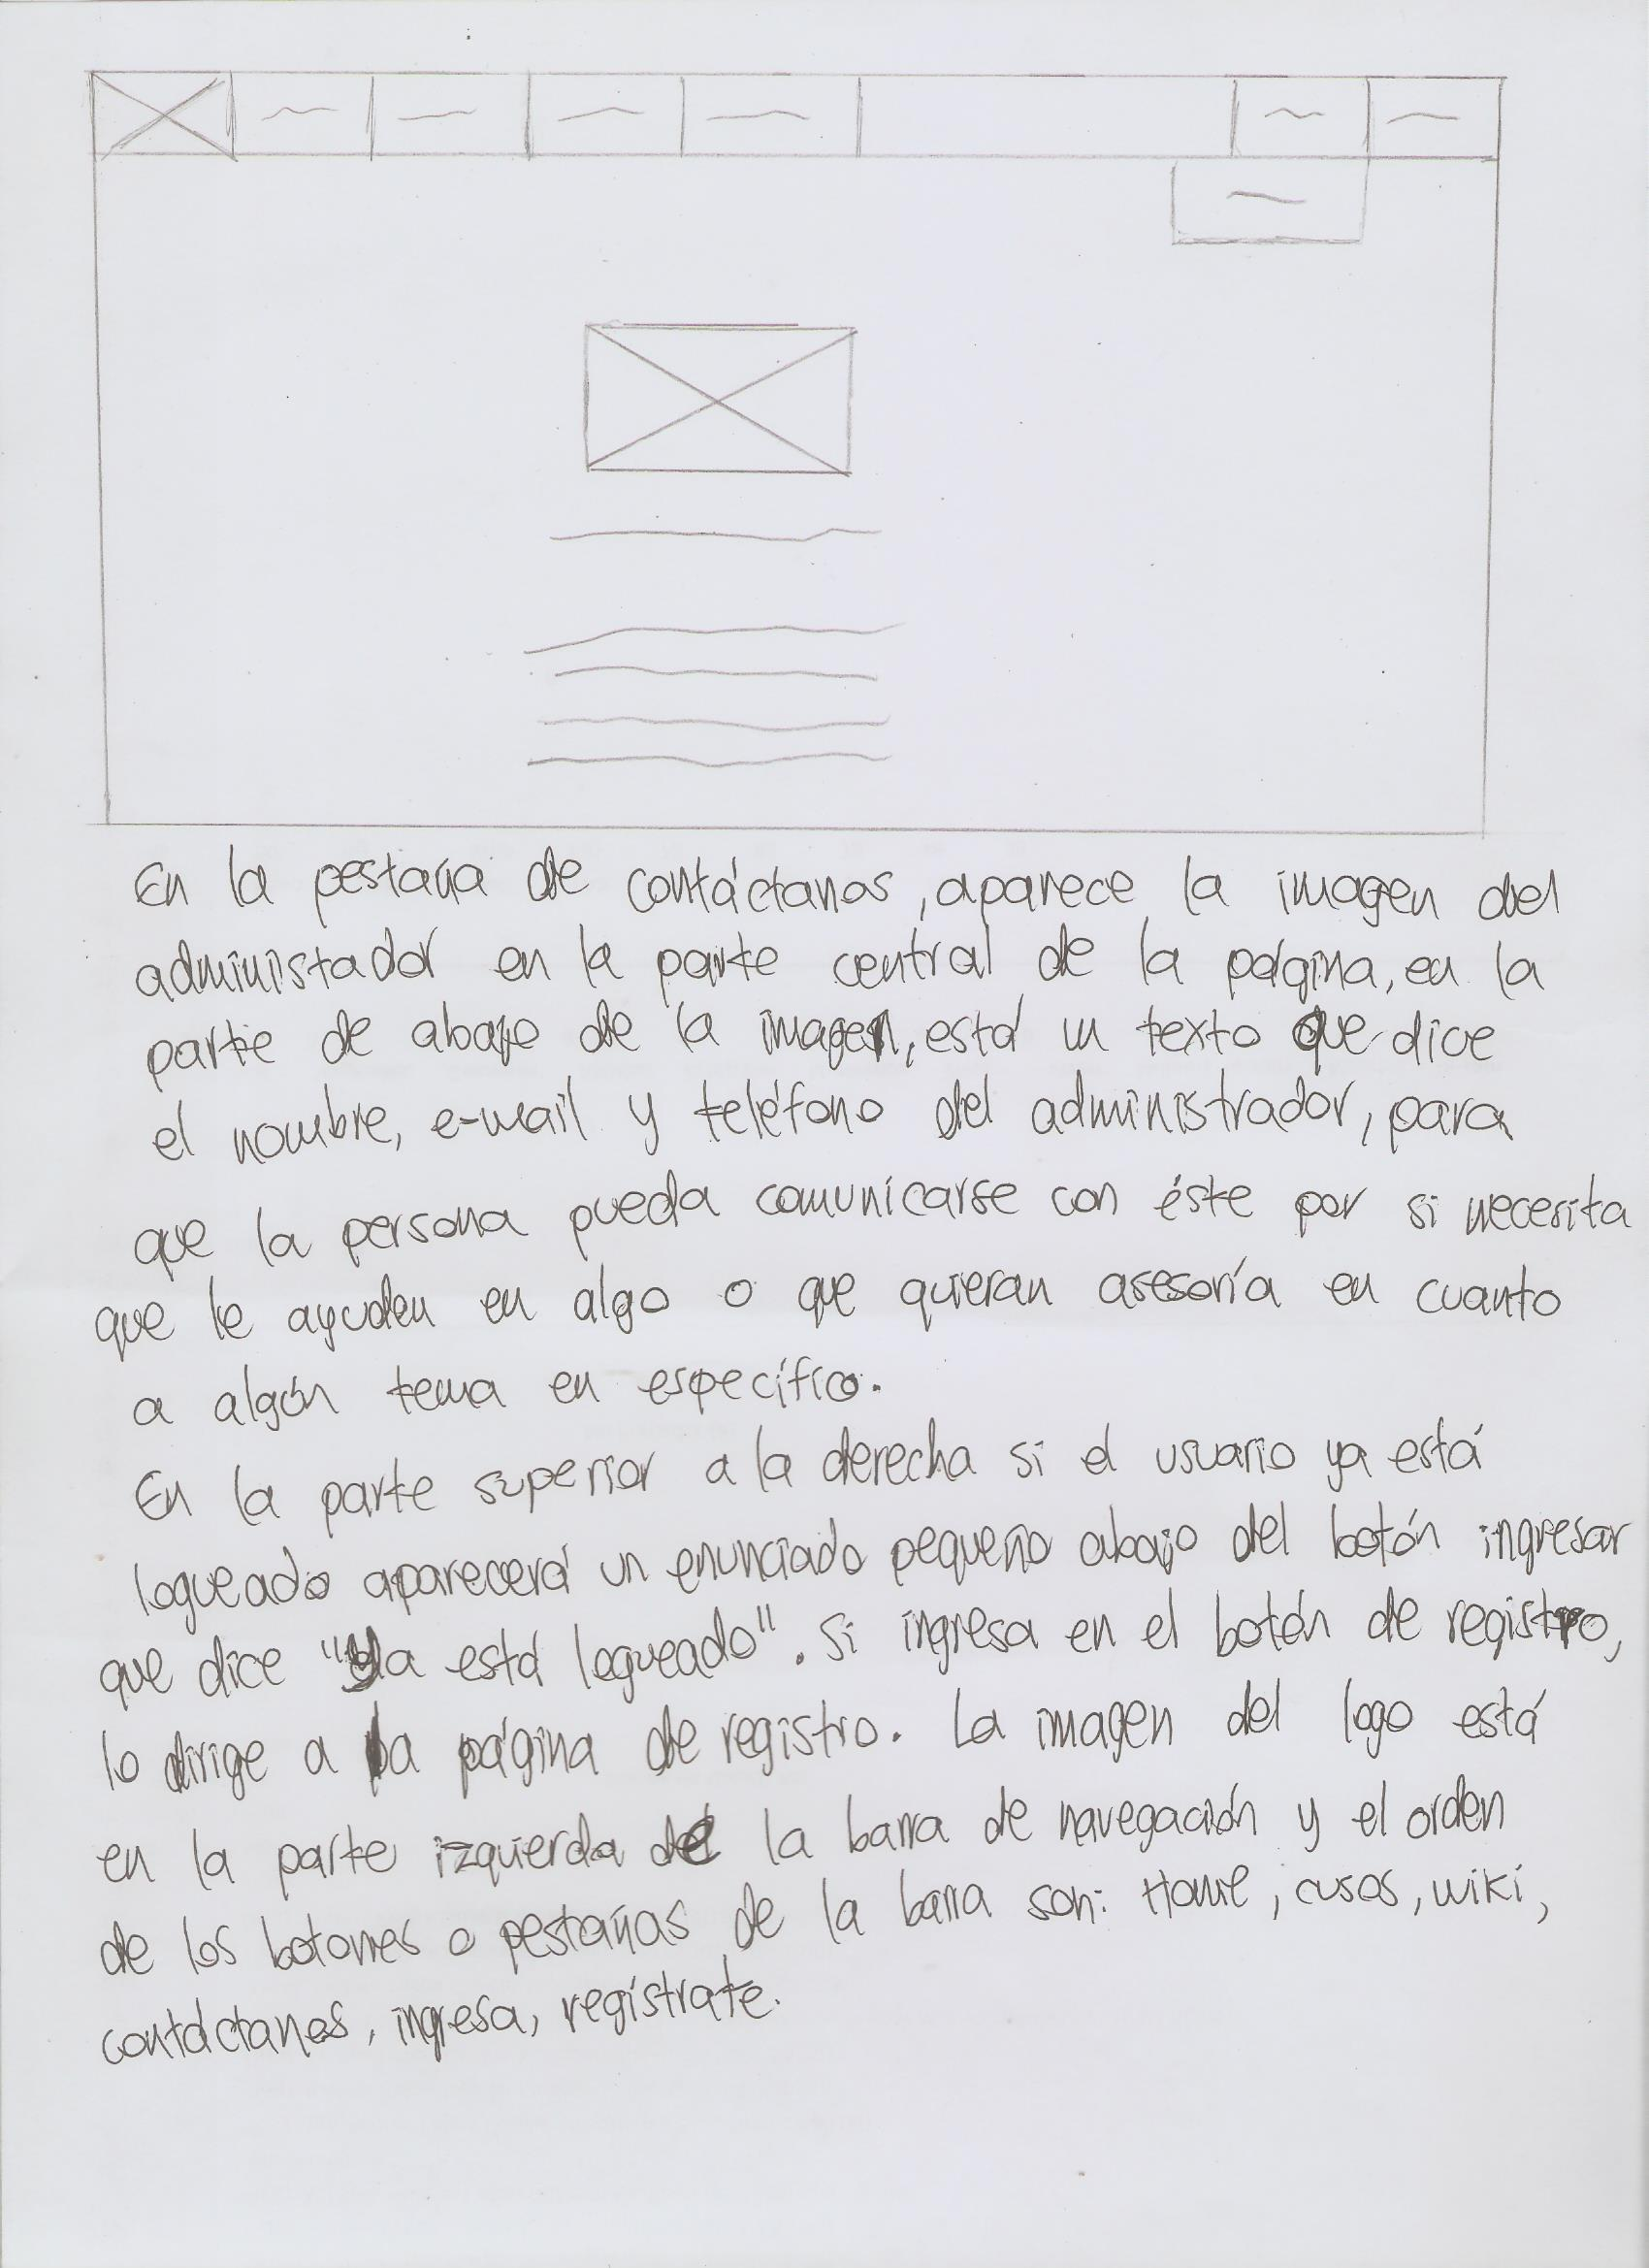 En la pestaña de contáctanos, aparece la imagen del
administador en la parte central de la página, en la
parte de abajo de la imagen, está un texto que dice
el nombre, e-mail y teléfono del administrador, para
que la persona pueda comunicarse con éste por si necesita
que le ayuden en algo o que quieran asesoría en cuanto
a algún tema en específico.
En la parte superior a la derecha si el usuario ya está
logueado aparecerá un enunciado pequeño abajo del botón ingresar
que dice "Ya está logueado". Si ingresa en el botón de registro,
lo dirige a la página de registro. La imagen del logo está
en la parte izquierda de la barra de navegación y el orden
de los botones o pestañas de la barra son: Home, cusos, wiki,
contáctanos, ingresa, regístrate.